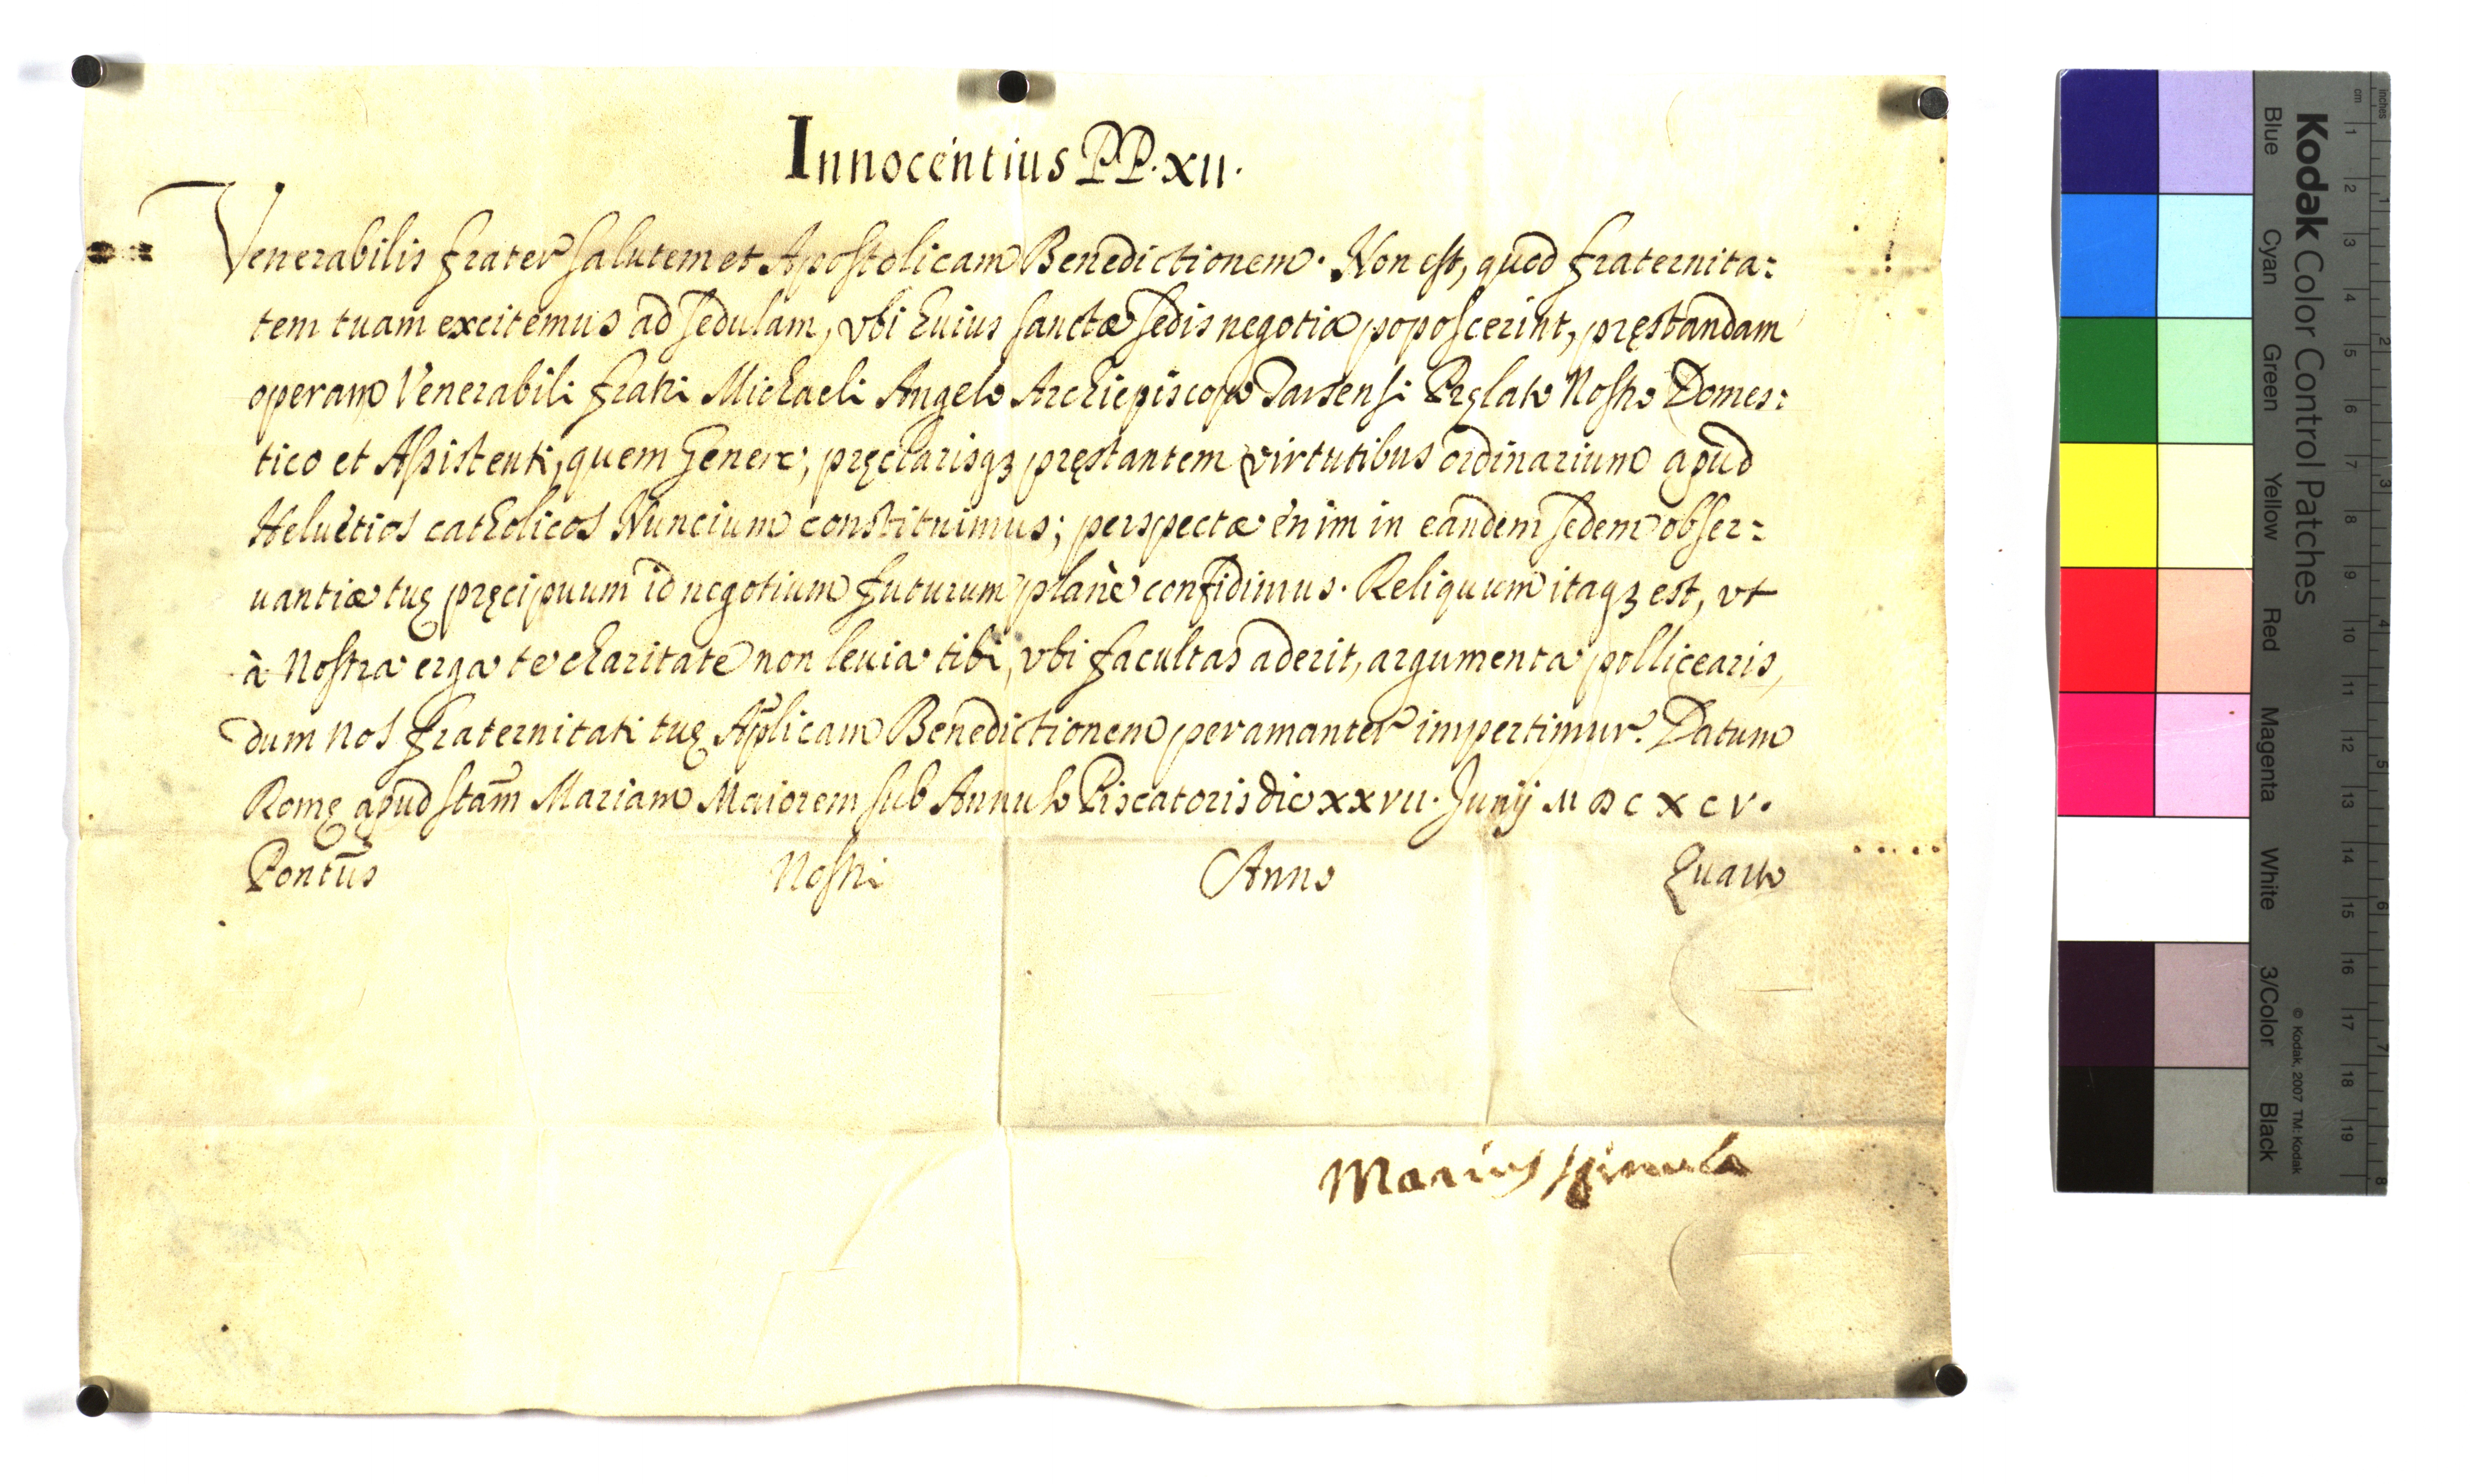 Innocentius PP. XII.
Venerabilis frater salutem et Apostolicam Benedictionem. Non est, quod fraternita:
tem tuam excitemus ad sedulam, vbi huius sanctæ sedis negotia poposcerint, pręstandam
operam Venerabili fratri Michaeli Angelo Archiepiscopo Tarsensi Pręlato Nostro Domes:
tico et Assistenti, quem genere, pręclarisqꝫ pręstantem virtutibus ordinarium apud
Heluetios catholicos Nuncium constituimus; perspectæ enim in eandem sedem obser:
uantiæ tuę pręcipuum id negotium futurum planè confidimus. Reliquum itaqꝫ est, vt
à Nostra erga te charitate non leuia tibi, vbi facultas aderit, argumenta pollicearis,
dum nos fraternitati tuę Aplicam̃ Benedictionem peramanter impertimur. Datum
Romę apud stam̃ Mariam Maiorem sub Annulo Piscatoris die XXVII. Junij MDCXCV.
Pontus̃ Nostri Anno Quarto
Marius Spinula
Kodak Color Control Patches
Blue Cyan Green Yellow Red Magenta White 3/Color Black
© Kodak, 2007 TM: Kodak
cm 1 2 3 4 5 6 7 8 9 10 11 12 13 14 15 16 17 18 19
inches 1 2 3 4 5 6 7 8